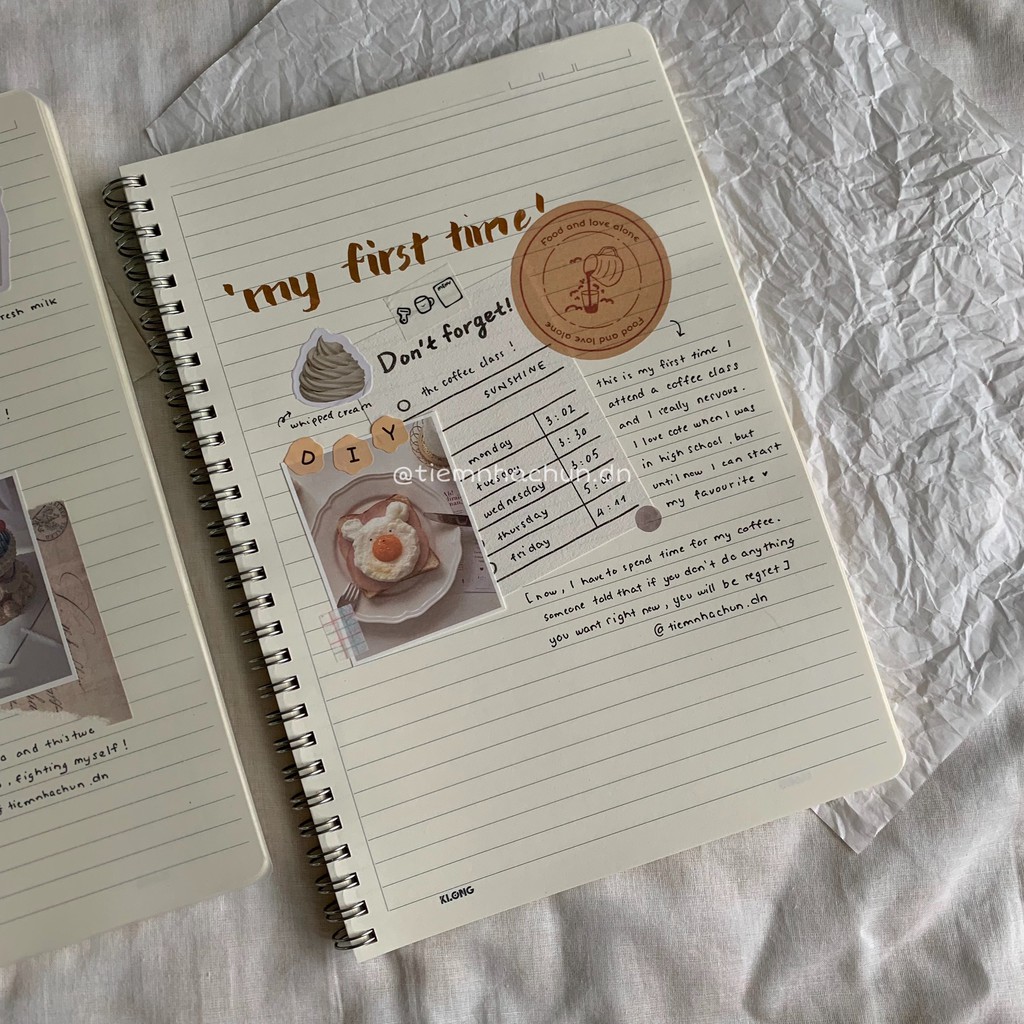 resh milk
!
a and this twe
, fighting myself!
tiemnhachun.dn
'my first time'
Food and love alone
Food and love alone
menu
Don't forget!
the coffee class!
SUNSHINE
whipped cream
DIY
monday 3:02
tuesday 3:30
wednesday 3:05
thursday 5:01
friday 4:11
@tiemnhachun.dn
this is my first time I
attend a coffee class
and I really nervous.
I love cafe when I was
in high school. but
until now I can start
my favourite
[now, I have to spend time for my coffee.
someone told that if you don't do anything
you want right now, you will be regret]
@tiemnhachun.dn
KLONG